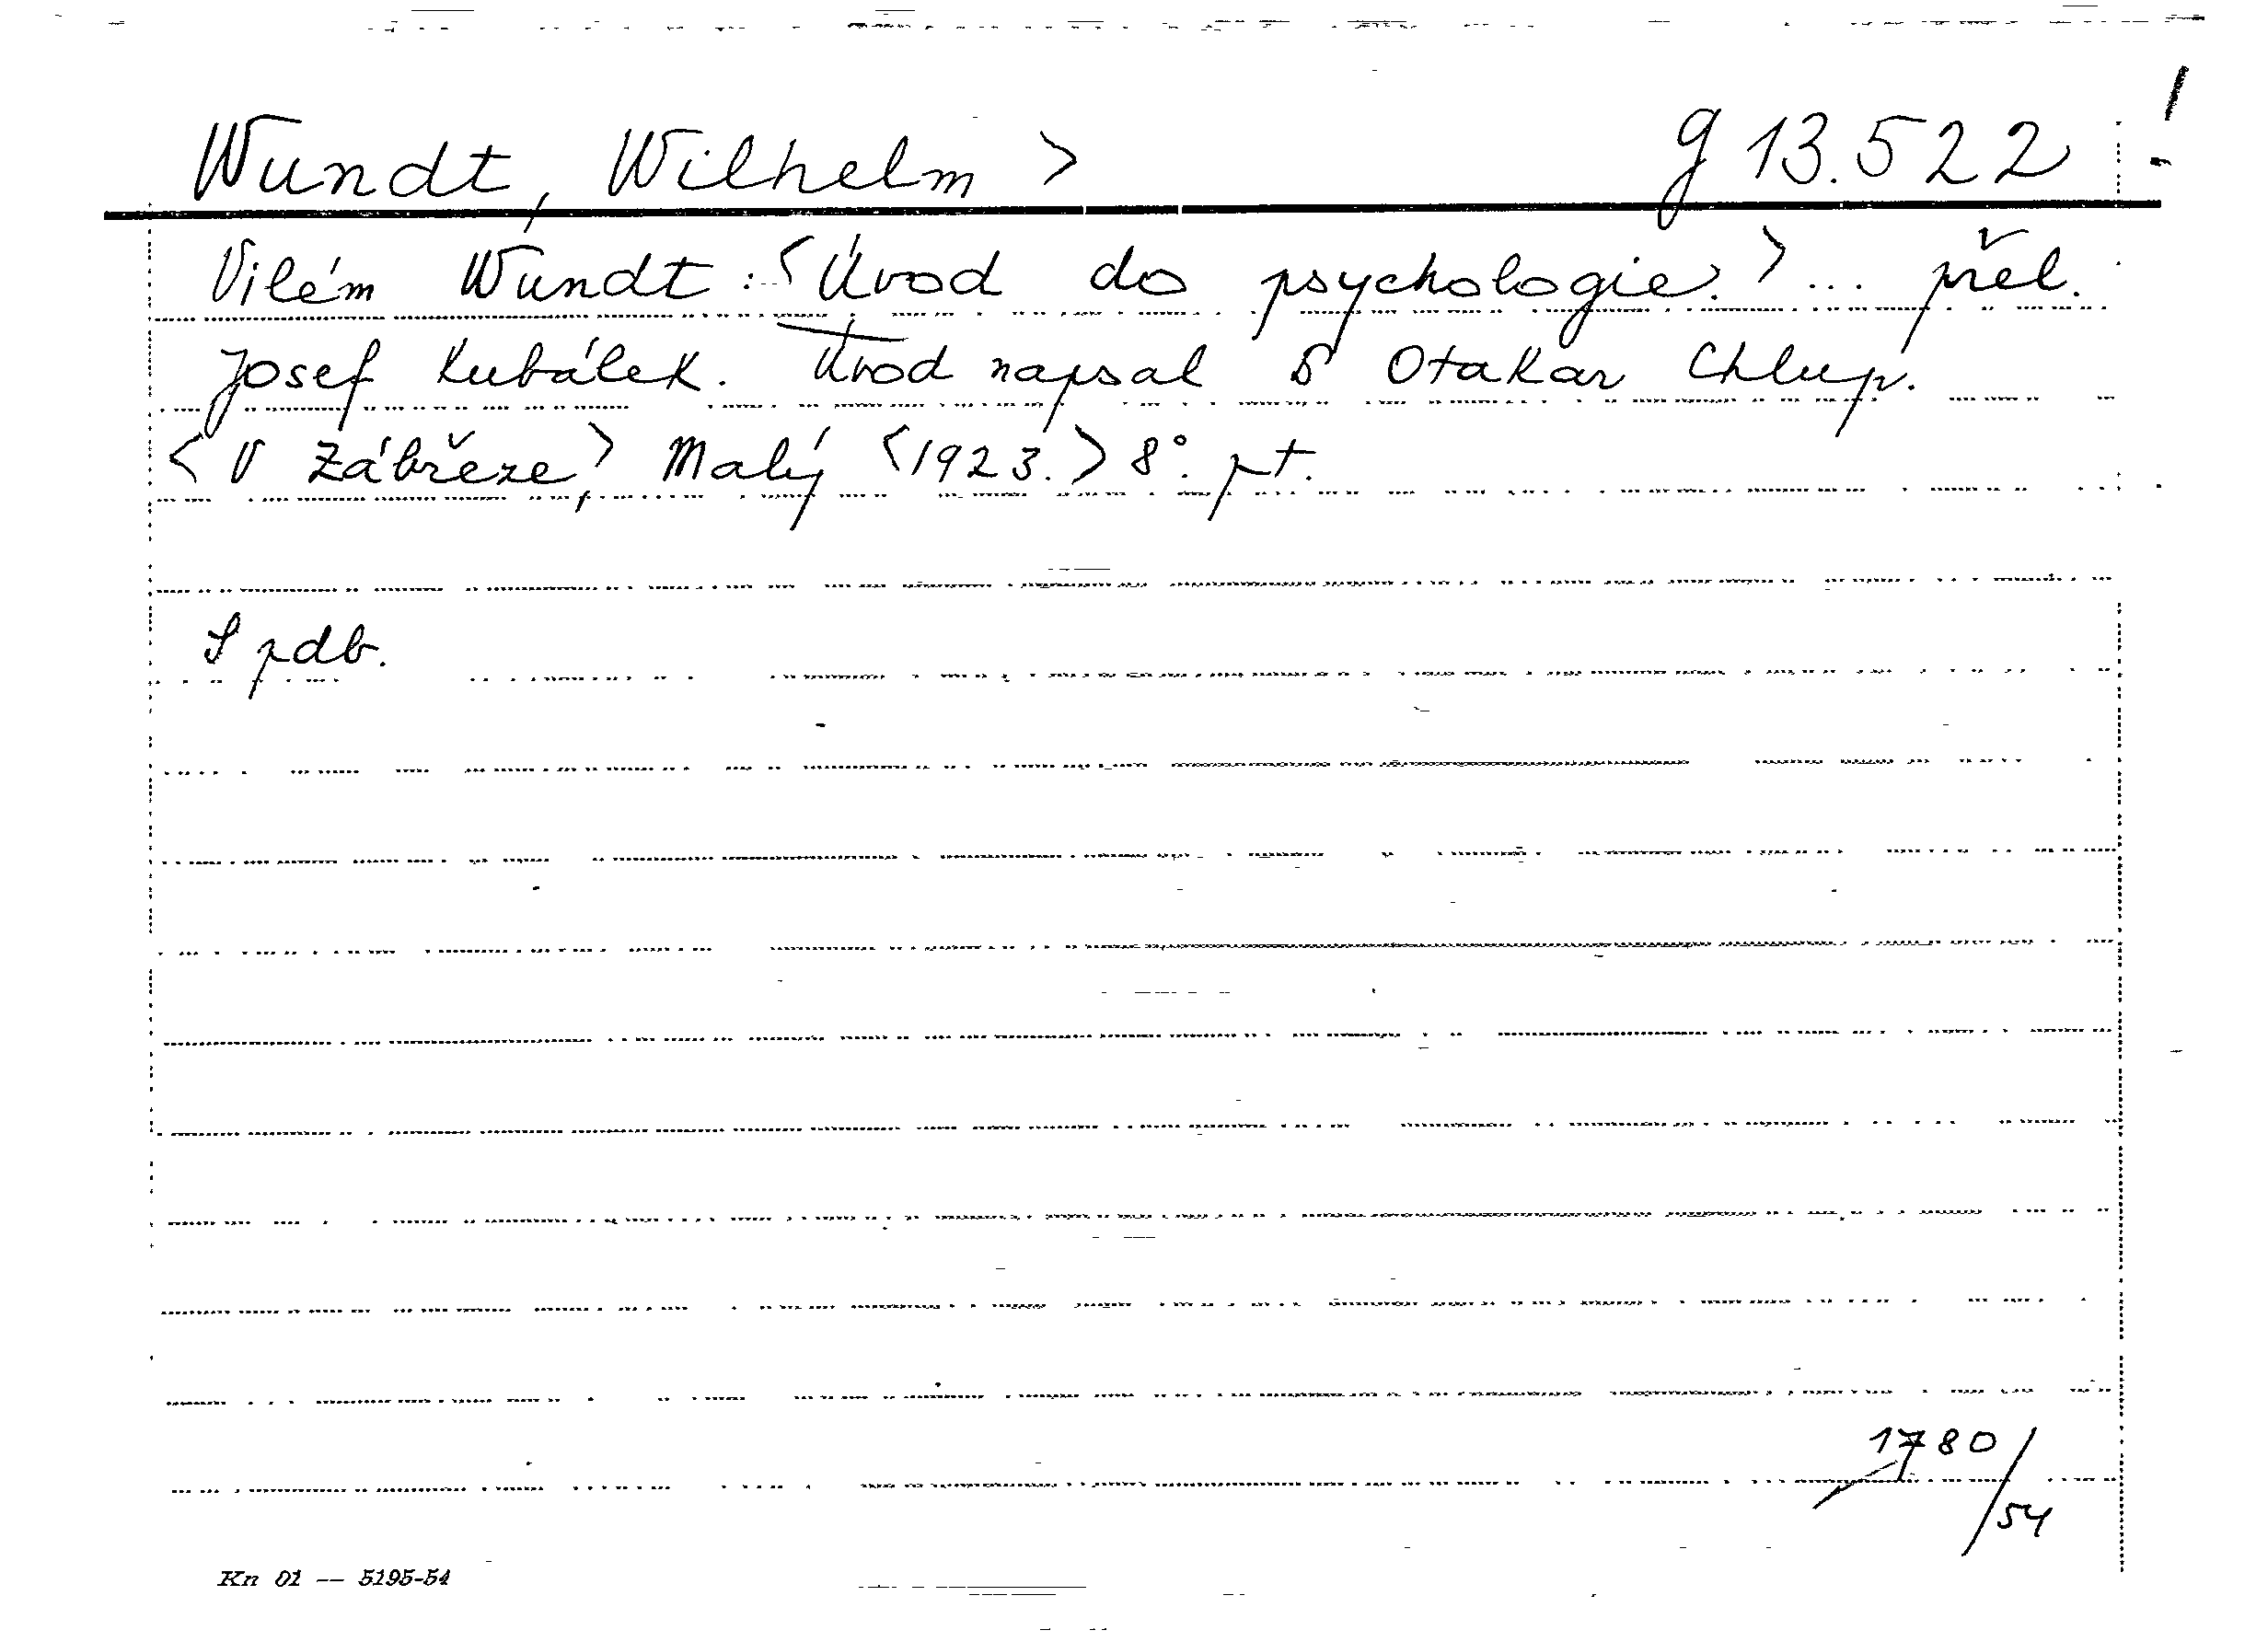 Wundt, Wilhelm > g 13.522 !
Vilém Wundt: <Úvod do psychologie.> ... přel.
Josef Kubálek. Úvod napsal Otakar Chlup.
<V Zábřeze,> Malý <1923.> 8°. pt.
S pdb.
1780/54
Kn 01 — 5195-54